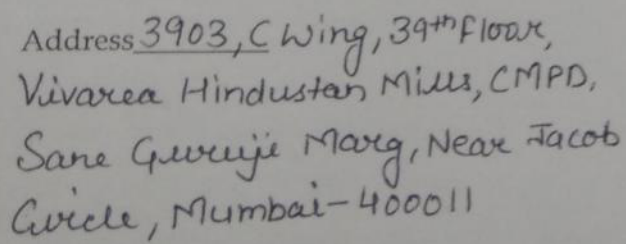 Address 3903, C Wing, 39th Floor,
Vivarea Hindustan Mills, CMPD,
Sane Guruji Marg, Near Jacob
Circle, Mumbai-400011